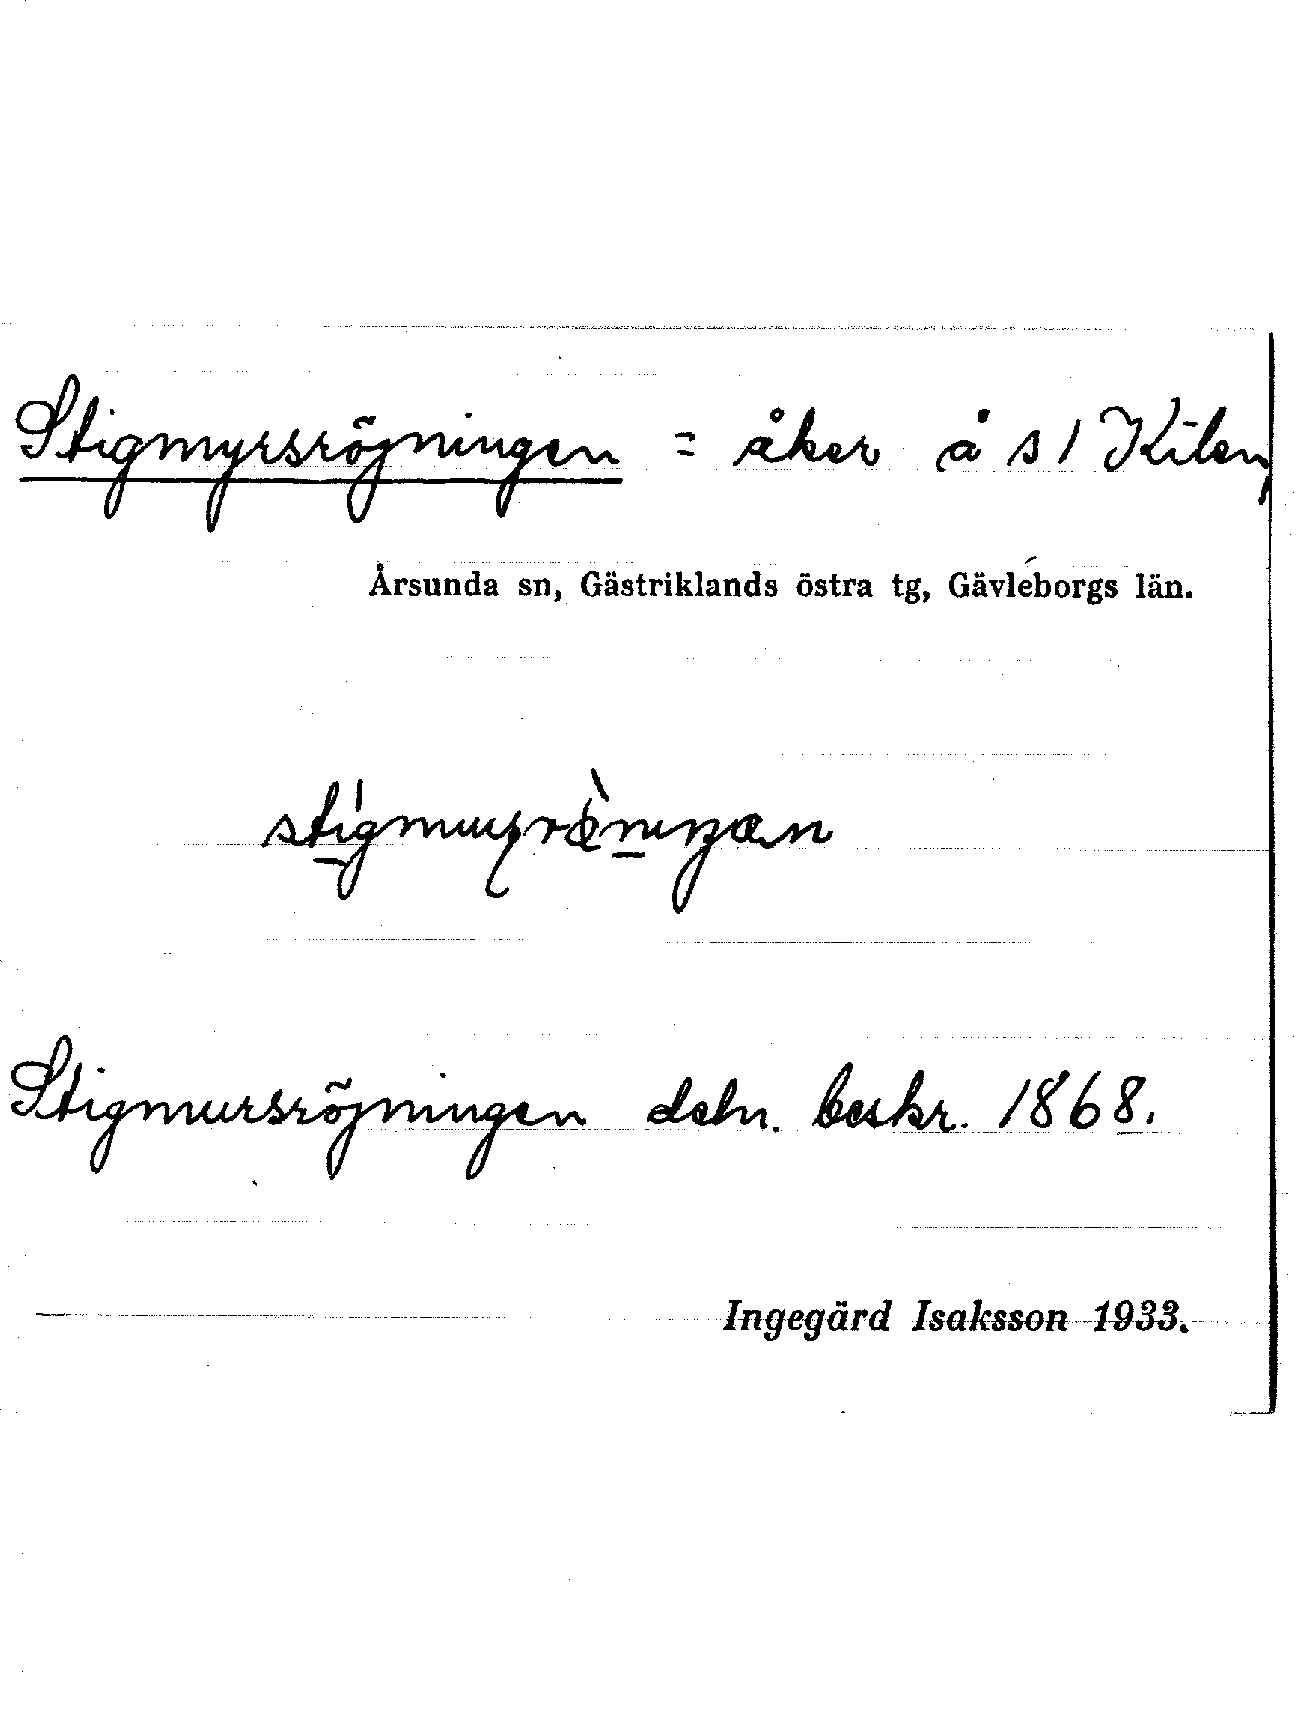 Stigmyrsröjningen = åker å s 1 Kilen,
Årsunda sn, Gästriklands östra tg, Gävleborgs län.
Stigmursröjningen deln. beskr. 1868.
Ingegärd Isaksson 1933.